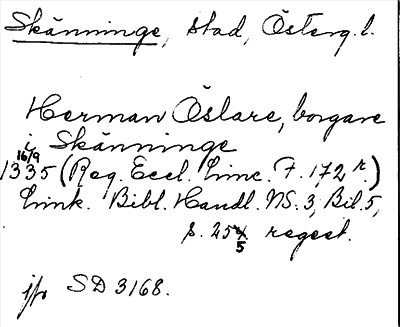 Skänninge, stad, Österg. l.
Herman Öslare, borgare
i Skänninge
16/9
1335 (Reg. Eccl. Linc. F. 172 r.)
Link. Bibl. Handl. NS. 3, Bil. 5,
s. 25
5
regest.
jfr SD 3168.